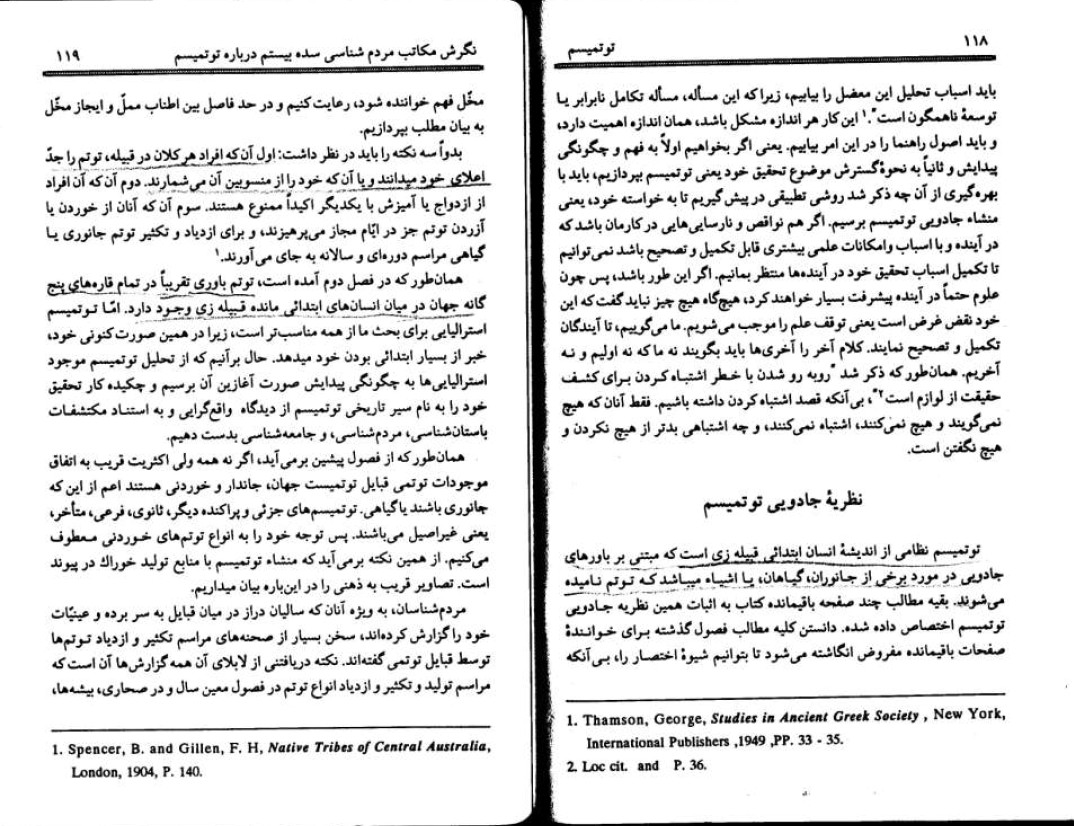 ۱۱۸
توتمیسم
باید اسباب تحلیل این معضل را بیابیم، زیرا که این مسأله، مسأله تکامل نابرابر یا
توسعهٔ ناهمگون است".۱ این کار هر اندازه مشکل باشد، همان اندازه اهمیت دارد،
و باید اصول راهنما را در این امر بیابیم. یعنی اگر بخواهیم اولاً به فهم و چگونگی
پیدایش و ثانیاً به نحوهٔ گسترش موضوع تحقیق خود یعنی توتمیسم بپردازیم، باید با
بهره‌گیری از آن چه ذکر شد روشی تطبیقی در پیش گیریم تا به خواسته خود، یعنی
منشاء جادویی توتمیسم برسیم. اگر هم نواقص و نارسایی‌هایی در کارمان باشد که
در آینده و با اسباب وامکانات علمی بیشتری قابل تکمیل و تصحیح باشد نمی‌توانیم
تا تکمیل اسباب تحقیق خود در آینده‌ها منتظر بمانیم. اگر این طور باشد، پس چون
علوم حتماً در آینده پیشرفت بسیار خواهند کرد، هیچ‌گاه هیچ چیز نباید گفت که این
خود نقض غرض است یعنی توقف علم را موجب می‌شویم. ما می‌گوییم، تا آیندگان
تکمیل و تصحیح نمایند. کلام آخر را آخری‌ها باید بگویند نه ما که نه اولیم و نه
آخریم. همان‌طور که ذکر شد "روبه رو شدن با خطر اشتباه کردن برای کشف
حقیقت از لوازم است"۲، بی‌آنکه قصد اشتباه کردن داشته باشیم. فقط آنان که هیچ
نمی‌گویند و هیچ نمی‌کنند، اشتباه نمی‌کنند، و چه اشتباهی بدتر از هیچ نکردن و
هیچ نگفتن است.
نظریهٔ جادویی توتمیسم
توتمیسم نظامی از اندیشهٔ انسان ابتدائی قبیله زی است که مبتنی بر باورهای
جادویی در مورد برخی از جانوران، گیاهان، یا اشیاء میباشد که توتم نامیده
می‌شوند. بقیه مطالب چند صفحه باقیمانده کتاب به اثبات همین نظریه جادویی
توتمیسم اختصاص داده شده. دانستن کلیه مطالب فصول گذشته برای خوانندهٔ
صفحات باقیمانده مفروض انگاشته می‌شود تا بتوانیم شیوهٔ اختصار را، بی‌آنکه
1. Thamson, George, Studies in Ancient Greek Society , New York,
International Publishers ,1949 ,PP. 33 - 35.
2. Loc cit. and P. 36.
نگرش مکاتب مردم شناسی سده بیستم درباره توتمیسم
۱۱۹
مخّل فهم خواننده شود، رعایت کنیم و در حد فاصل بین اطناب مملّ و ایجاز مخّل
به بیان مطلب بپردازیم.
بدواً سه نکته را باید در نظر داشت: اول آن‌که افراد هر کلان در قبیله، توتم را جدّ
اعلای خود میدانند و یا آن‌که خود را از منسوبین آن می‌شمارند. دوم آن‌که آن افراد
از ازدواج یا آمیزش با یکدیگر اکیداً ممنوع هستند. سوم آن‌که آنان از خوردن یا
آزردن توتم جز در ایّام مجاز می‌پرهیزند، و برای ازدیاد و تکثیر توتم جانوری یا
گیاهی مراسم دوره‌ای و سالانه به جای می‌آورند.۱
همان‌طور که در فصل دوم آمده است، توتم باوری تقریباً در تمام قاره‌های پنج
گانه جهان در میان انسان‌های ابتدائی مانده قبیله زی وجود دارد. امّا توتمیسم
استرالیایی برای بحث ما از همه مناسب‌تر است، زیرا در همین صورت کنونی خود،
خبر از بسیار ابتدائی بودن خود میدهد. حال برآنیم که از تحلیل توتمیسم موجود
استرالیایی‌ها به چگونگی پیدایش صورت آغازین آن برسیم و چکیده کار تحقیق
خود را به نام سیر تاریخی توتمیسم از دیدگاه واقع‌گرایی و به استناد مکتشفات
باستان‌شناسی، مردم‌شناسی، و جامعه‌شناسی بدست دهیم.
همان‌طور که از فصول پیشین برمی‌آید، اگر نه همه ولی اکثریت قریب به اتفاق
موجودات توتمی قبایل توتمیست جهان، جاندار و خوردنی هستند اعم از این که
جانوری باشند یا گیاهی. توتمیسم‌های جزئی و پراکنده دیگر، ثانوی، فرعی، متأخر،
یعنی غیراصیل می‌باشند. پس توجه خود را به انواع توتم‌های خوردنی معطوف
می‌کنیم. از همین نکته برمی‌آید که منشاء توتمیسم با منابع تولید خوراك در پیوند
است. تصاویر قریب به ذهنی را در این‌باره بیان میداریم.
مردم‌شناسان، به ویژه آنان که سالیان دراز در میان قبایل به سر برده و عینیّات
خود را گزارش کرده‌اند، سخن بسیار از صحنه‌های مراسم تکثیر و ازدیاد توتم‌ها
توسط قبایل توتمی گفته‌اند. نکته دریافتنی از لابلای آن همه گزارش‌ها آن است که
مراسم تولید و تکثیر و ازدیاد انواع توتم در فصول معین سال و در صحاری، بیشه‌ها،
1. Spencer, B. and Gillen, F. H, Native Tribes of Central Australia,
London, 1904, P. 140.